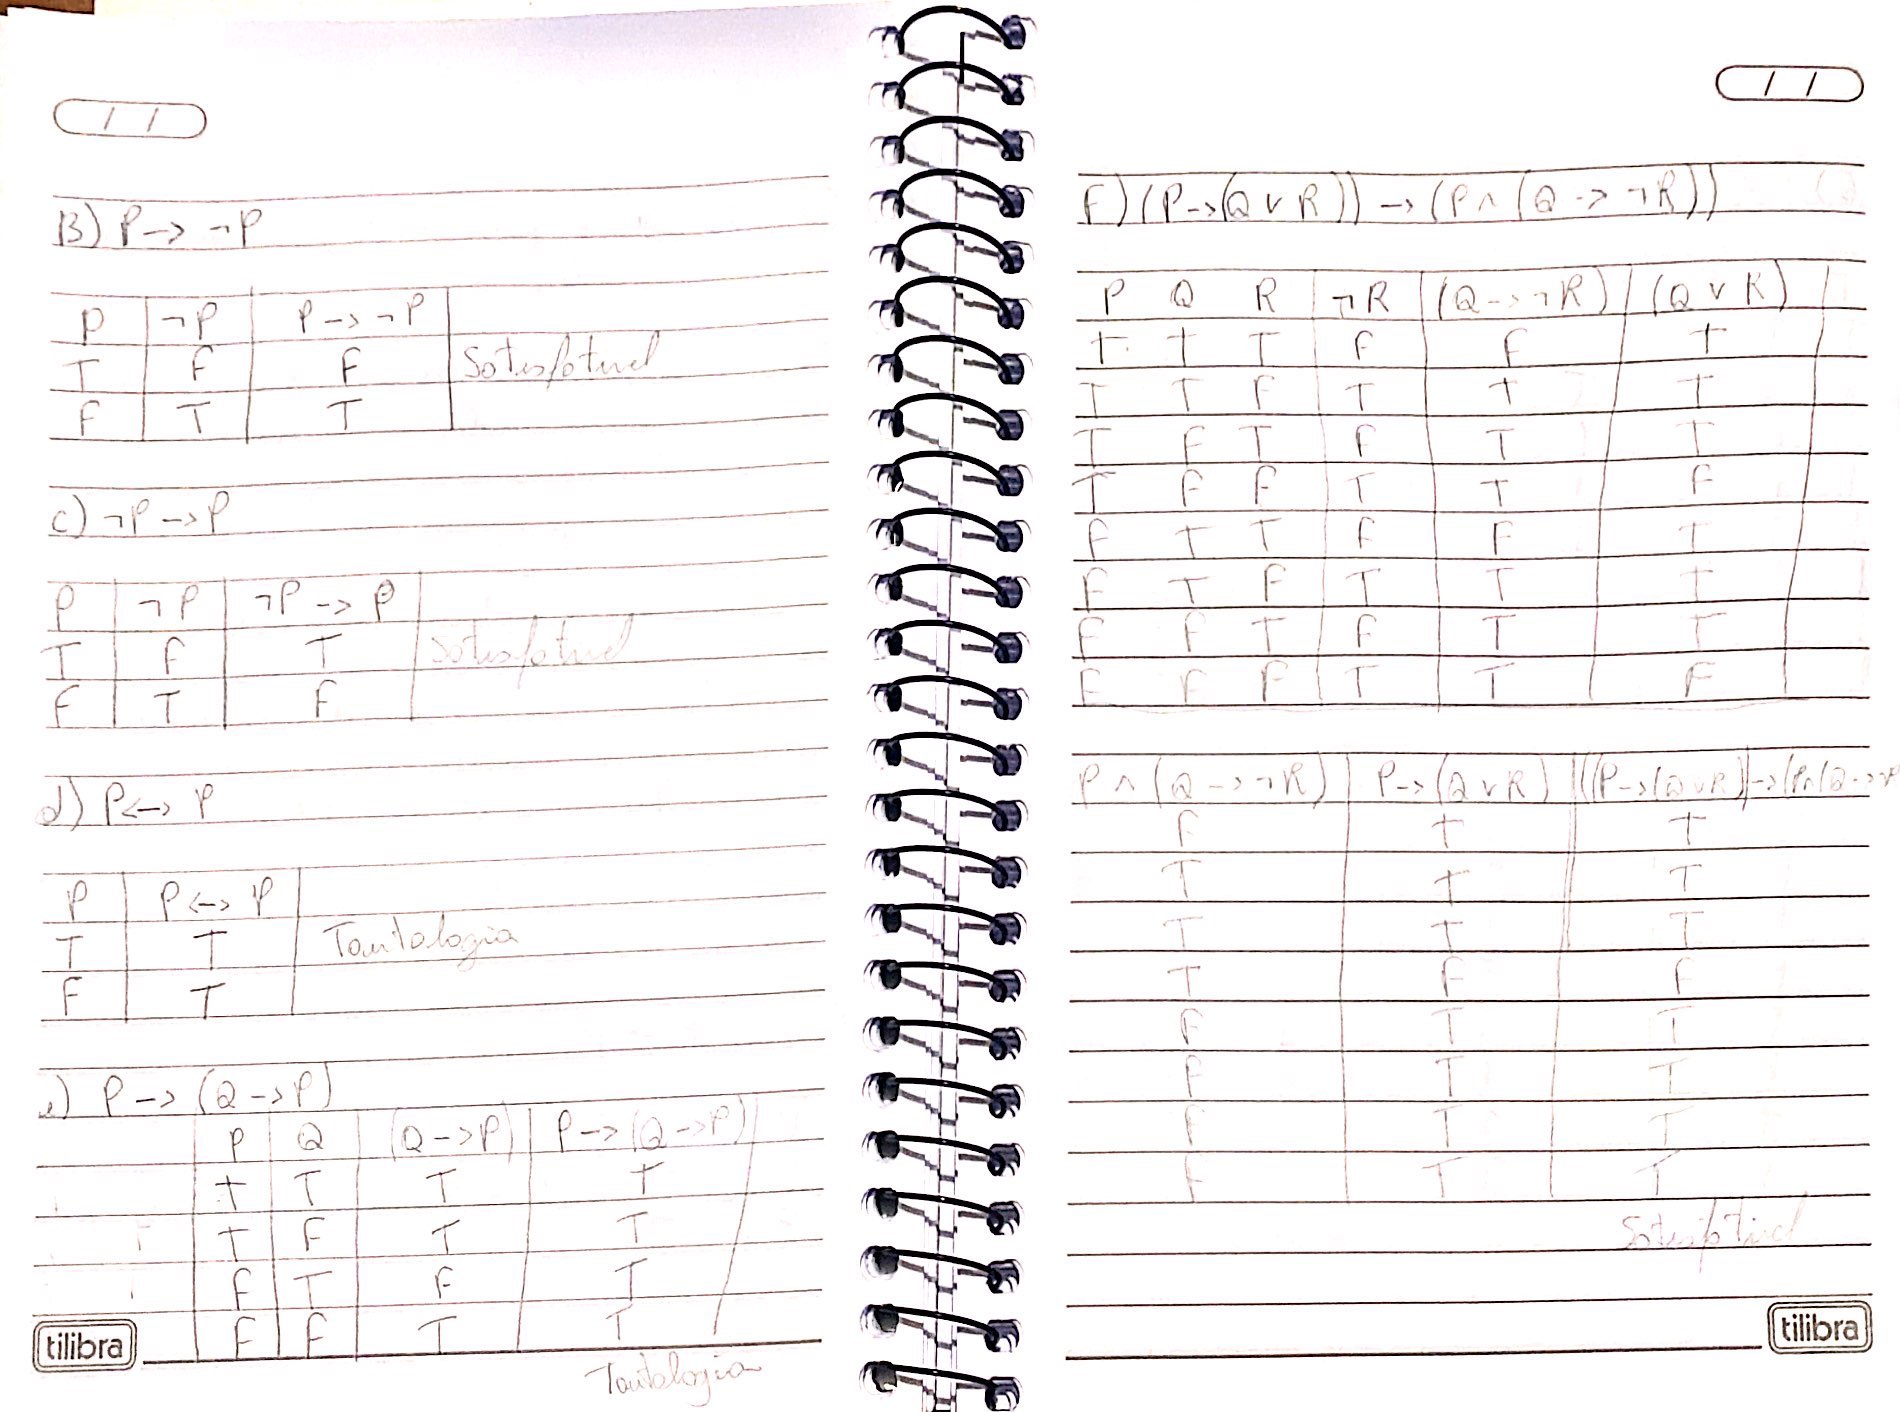 / /
B) P → ¬P
P ¬P P → ¬P
T F F Satisfatível
F T T
c) ¬P → P
P ¬P ¬P → P
T F T Satisfatível
F T F
d) P ↔ P
P P ↔ P
T T Tautologia
F T
e) P → (Q → P)
P Q (Q → P) P → (Q → P)
T T T T
T F T T
F T F T
F F T T
tilibra
Tautologia
/ /
F) (P → (Q ∨ R)) → (P ∧ (Q → ¬R))
P Q R ¬R (Q → ¬R) (Q ∨ R)
T T T F F T
T T F T T T
T F T F T T
T F F T T F
F T T F F T
F T F T T T
F F T F T T
F F F T T F
P ∧ (Q → ¬R) P → (Q ∨ R) ((P → (Q ∨ R)) → (P ∧ (Q → ¬R
F T T
T T T
T T T
T F F
F T T
F T T
F T T
F T T
Satisfatível
tilibra